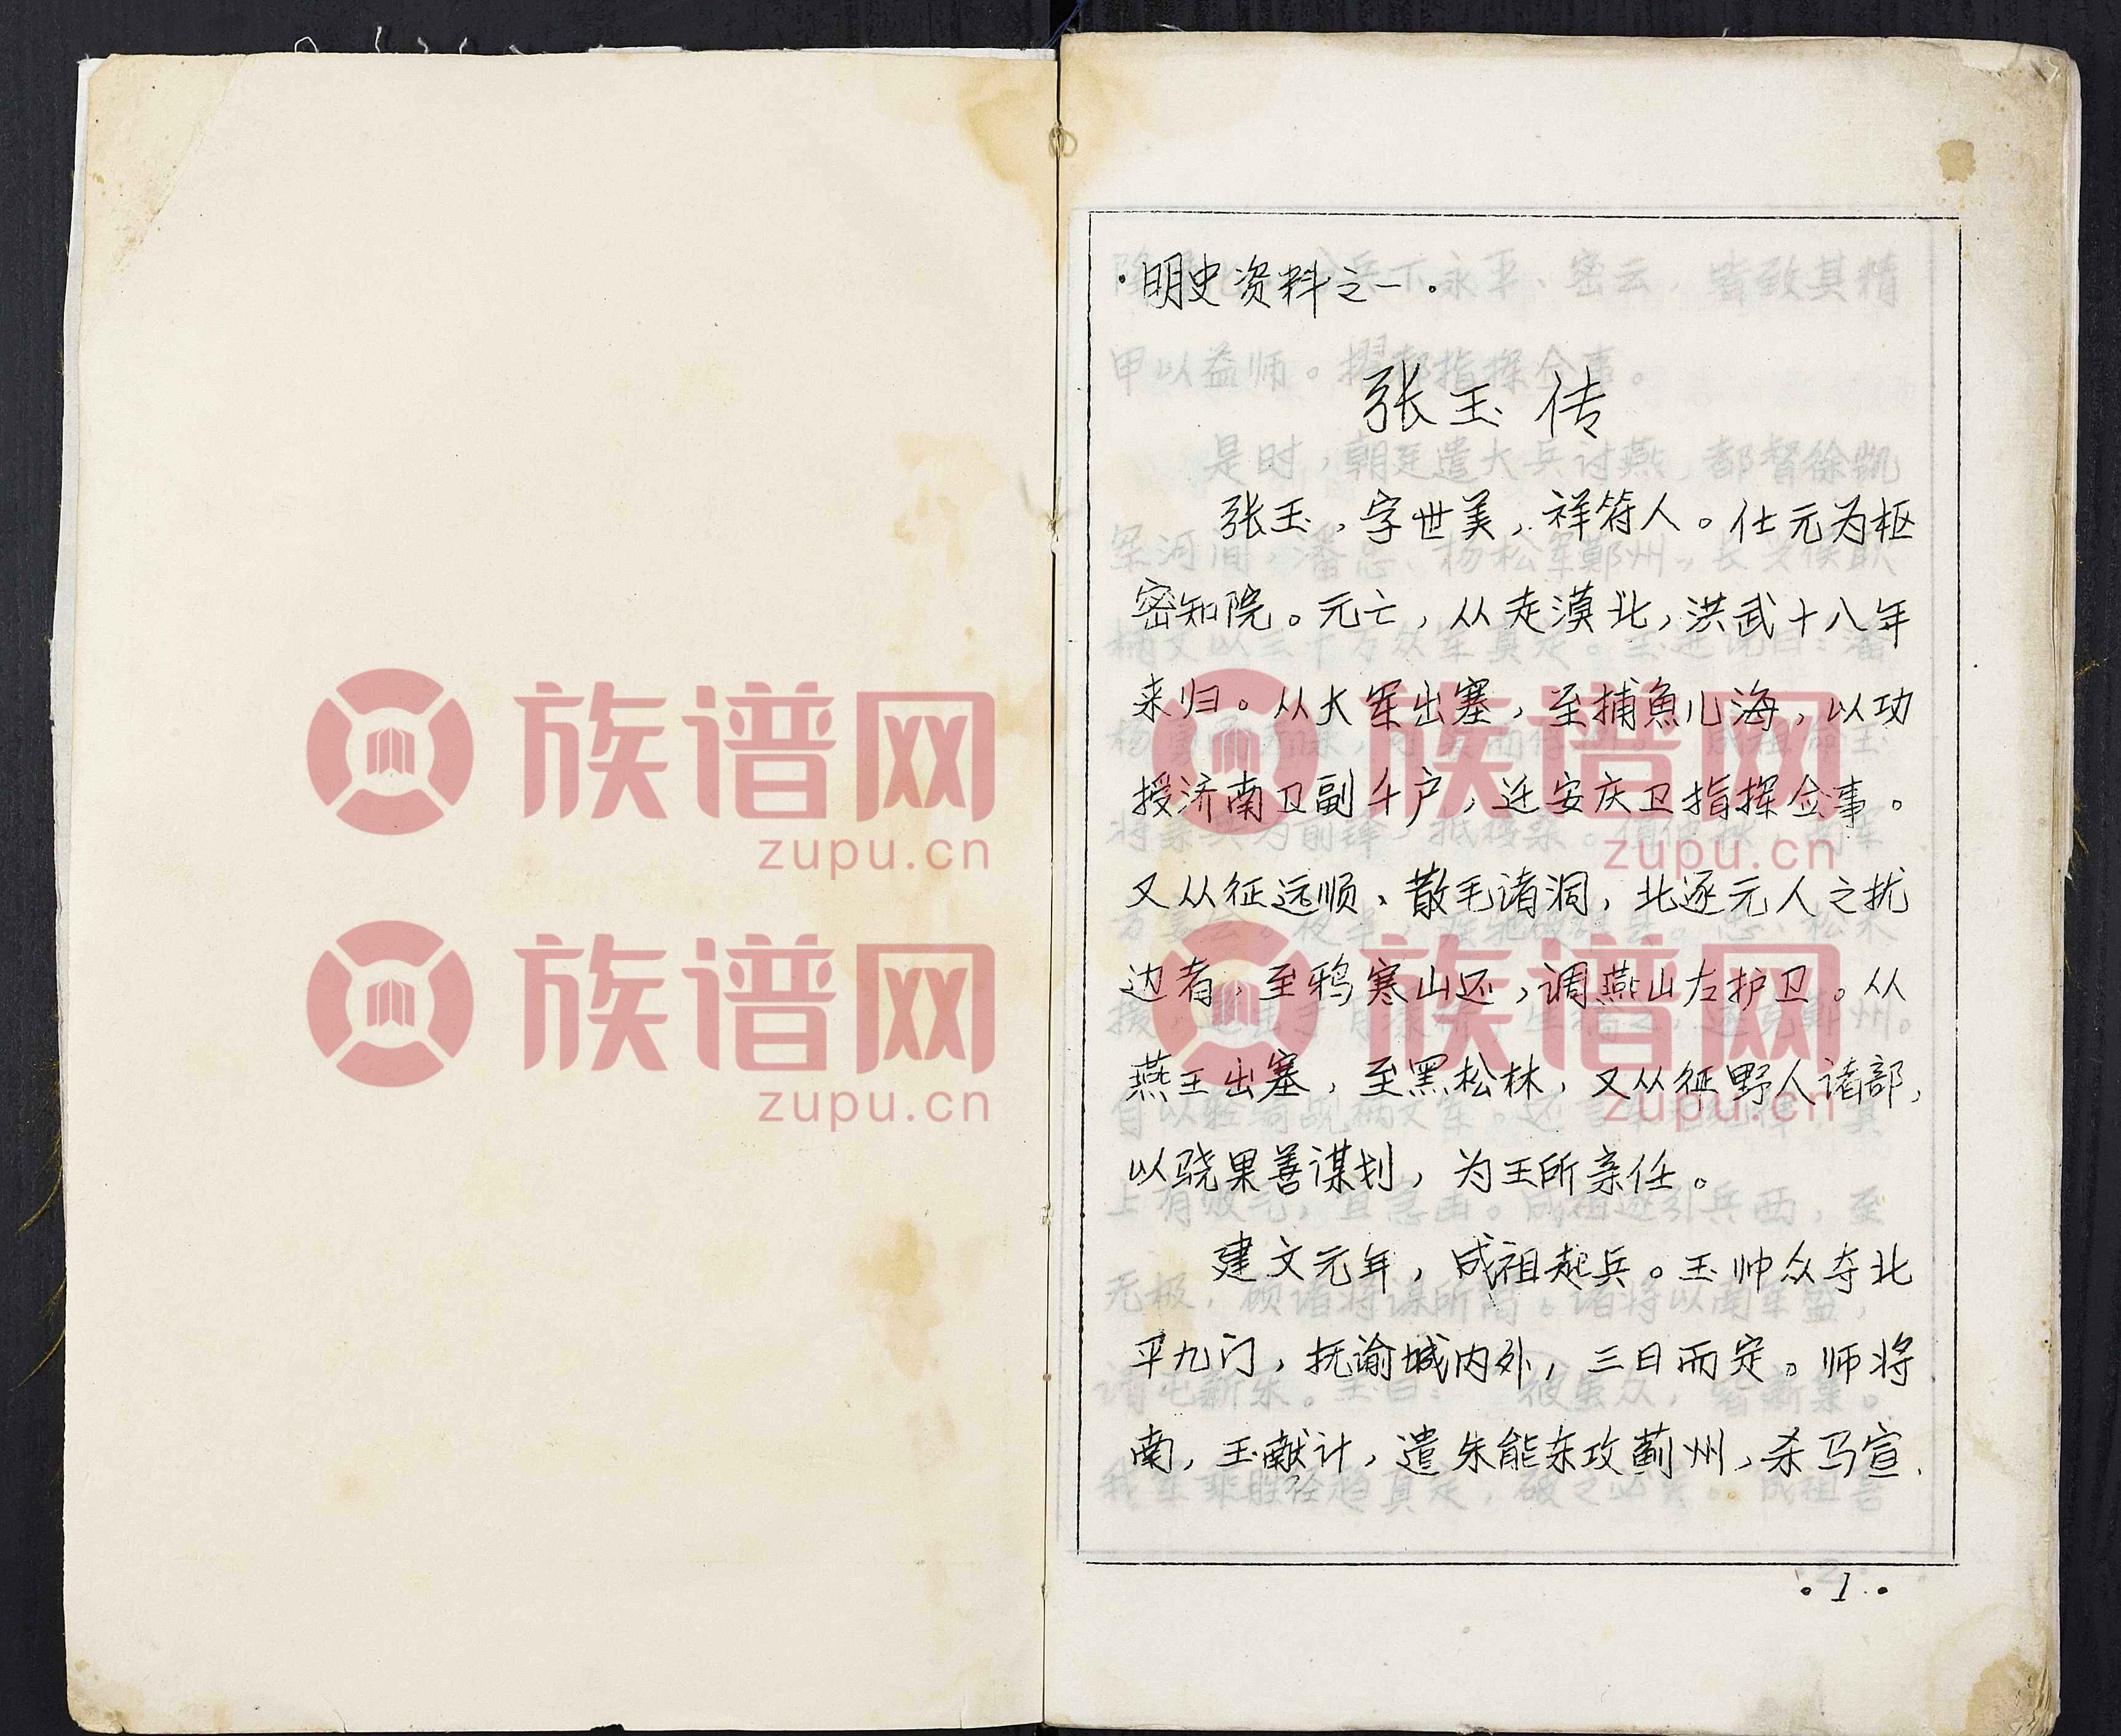 ·明史资料之一·
张玉传
张玉，字世美，祥符人。仕元为枢
密知院。元亡，从走漠北，洪武十八年
来归。从大军出塞，至捕魚儿海，以功
授济南卫副千户，迁安庆卫指挥佥事。
又从征远顺、散毛诸洞，北逐元人之扰
边者，至鸦寒山还，调燕山左护卫。从
燕王出塞，至黑松林，又从征野人诸部，
以骁果善谋划，为王所亲任。
建文元年，成祖起兵。玉帅众夺北
平九门，抚谕城内外，三日而定。师将
南，玉献计，遣朱能东攻蓟州，杀马宣，
·1·
族谱网
zupu.cn
族谱网
zupu.cn
族谱网
zupu.cn
族谱网
zupu.cn